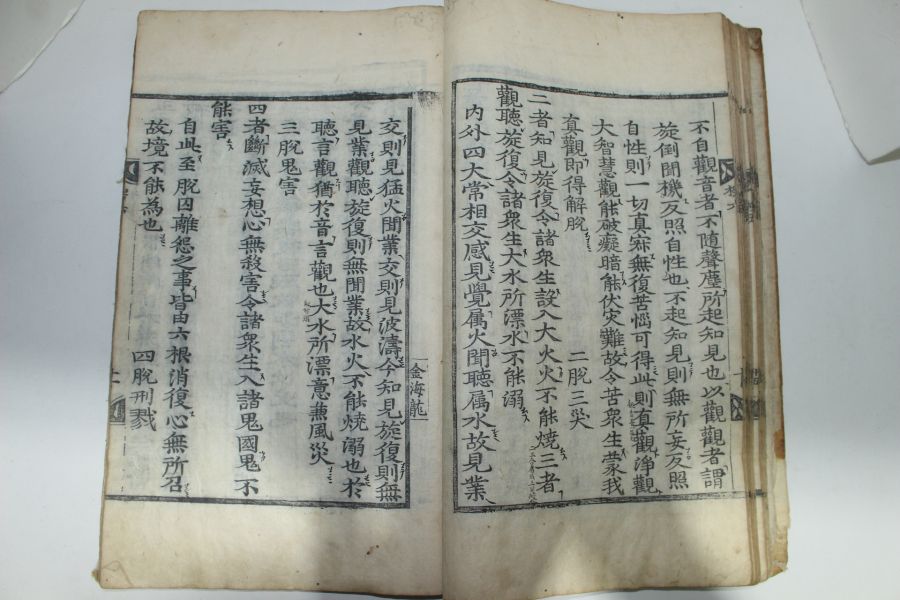 不自觀音者不隨聲塵所起知見也以觀觀者謂
旋倒聞機反照自性也不起知見則無所妄反照
自性則一切真寂無復苦惱可得此則真觀淨觀
大智慧觀能破癡暗能伏灾難故令苦衆生蒙我
真觀即得解脫 二脫三灾
二者知見旋復令諸衆生設入大火火不能燒三者
觀聽旋復令諸衆生大水所漂水不能溺
內外四大常相交感見覺属火聞聽属水故見業
金海龍
交則見猛火聞業交則見波濤今知見旋復則無
見業觀聽旋復則無聞業故水火不能燒溺也於
聽言觀猶於音言觀也大水所漂意兼風灾
三脫鬼害
四者斷滅妄想心無殺害令諸衆生入諸鬼國鬼不
能害
自此至脫囚離怨之事皆由六根消復心無所召
故境不能為也 四脫刑戮